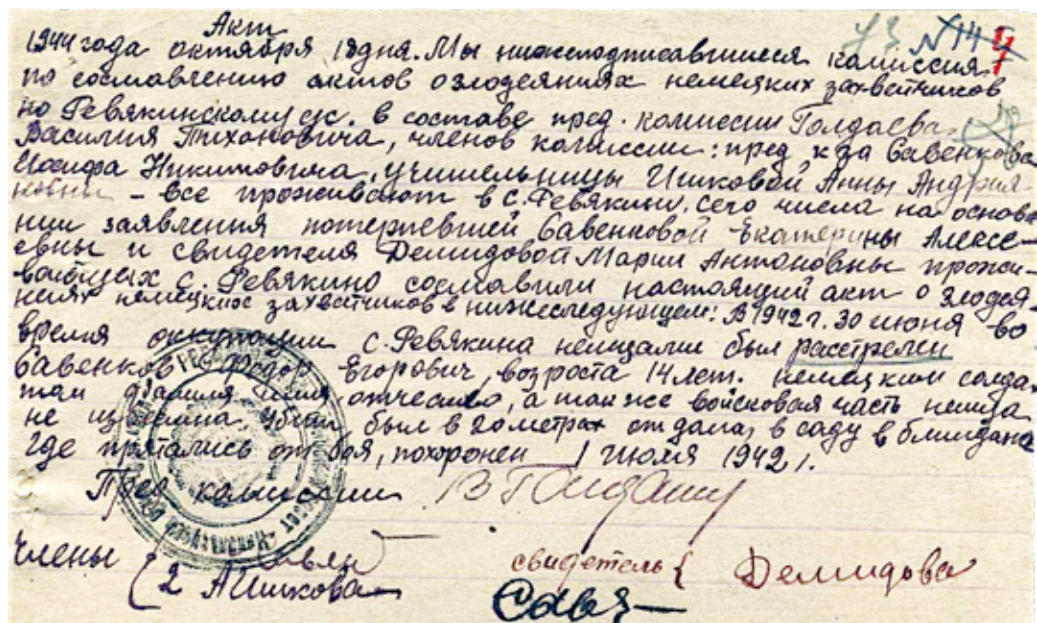 Акт
43 N 144
1944 года октября 18 дня. Мы нижеподписавшиеся комиссия
по составлению актов о злодеяниях немецких захватчиков
по Ревякинскому с/с. в составе пред. комиссии Голдаева
Василия Тихоновича, членов комиссии: пред к-за Савенкова
Иосифа Никитовича, учительницы Ишковой Анны Андрия
новны - все проживают в с. Ревякин. сего числа на основа
нии заявления потерпевшей Савенковой Екатерины Алексе-
евны и свидетеля Демидовой Марии Антоновны прожи-
вающих с. Ревякино составили настоящий акт о злодея-
ниях немецкиос захватчиков в нижеследующем: В 1942 г. 30 июня во
время оккупации с. Ревякина немцами был расстрелен
Савенков Федор Егорович, возроста 14 лет. немецким солда
том фамилия имя, отчество, а так же войсковая часть немца
не известна. Убит, был в 20 метрах от дома, в саду в блиндаже
где прятались от боя, похоронен 1 июля 1942 г.
Пред комиссии
Члены
2 АИшкова
свидетель { Демидова
Савен